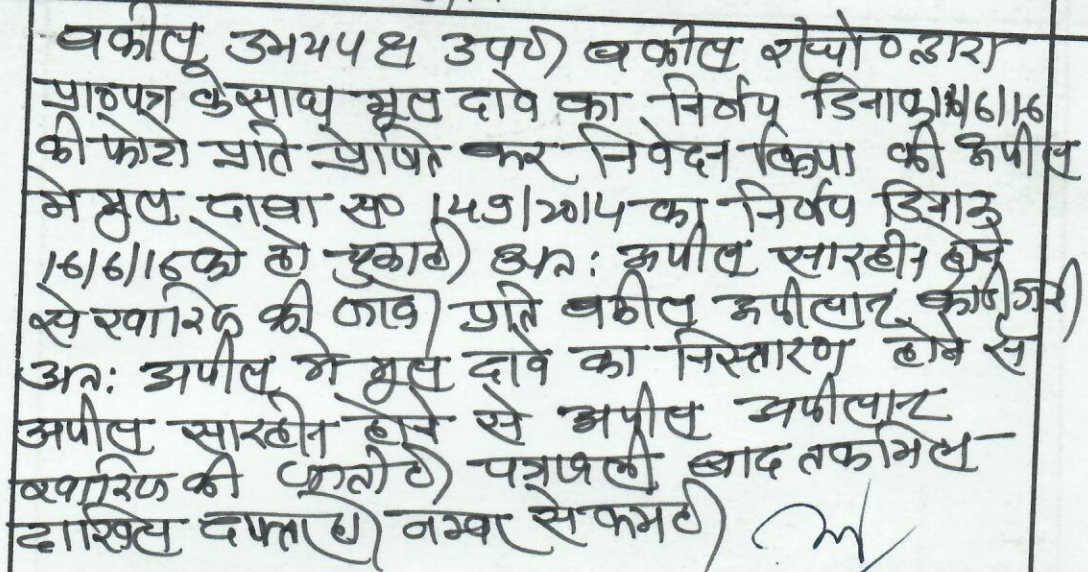 वकील उभयपक्ष उप० है) वकील रेस्पो० द्वारा
प्रा०पत्र के साथ मूल दावे का निर्णय दिनांक 16/6/16
की फोटो प्रति प्रेषित कर निवेदन किया की अपील
मे मूल दावा स० 149/2014 का निर्णय दिनांक
16/6/16 को हो चुका है) अत: अपील सारहीन होने
से खारिज की जावे) प्रति वकील अपीलांट को दी गई)
अत: अपील मे मूल दावे का निस्तारण होने से
अपील सारहीन होने से अपील अपीलांट
खारिज की जाती है) पत्रावली बाद तकमिल
दाखिल दफ्तर हो) नम्बर से कम हो)